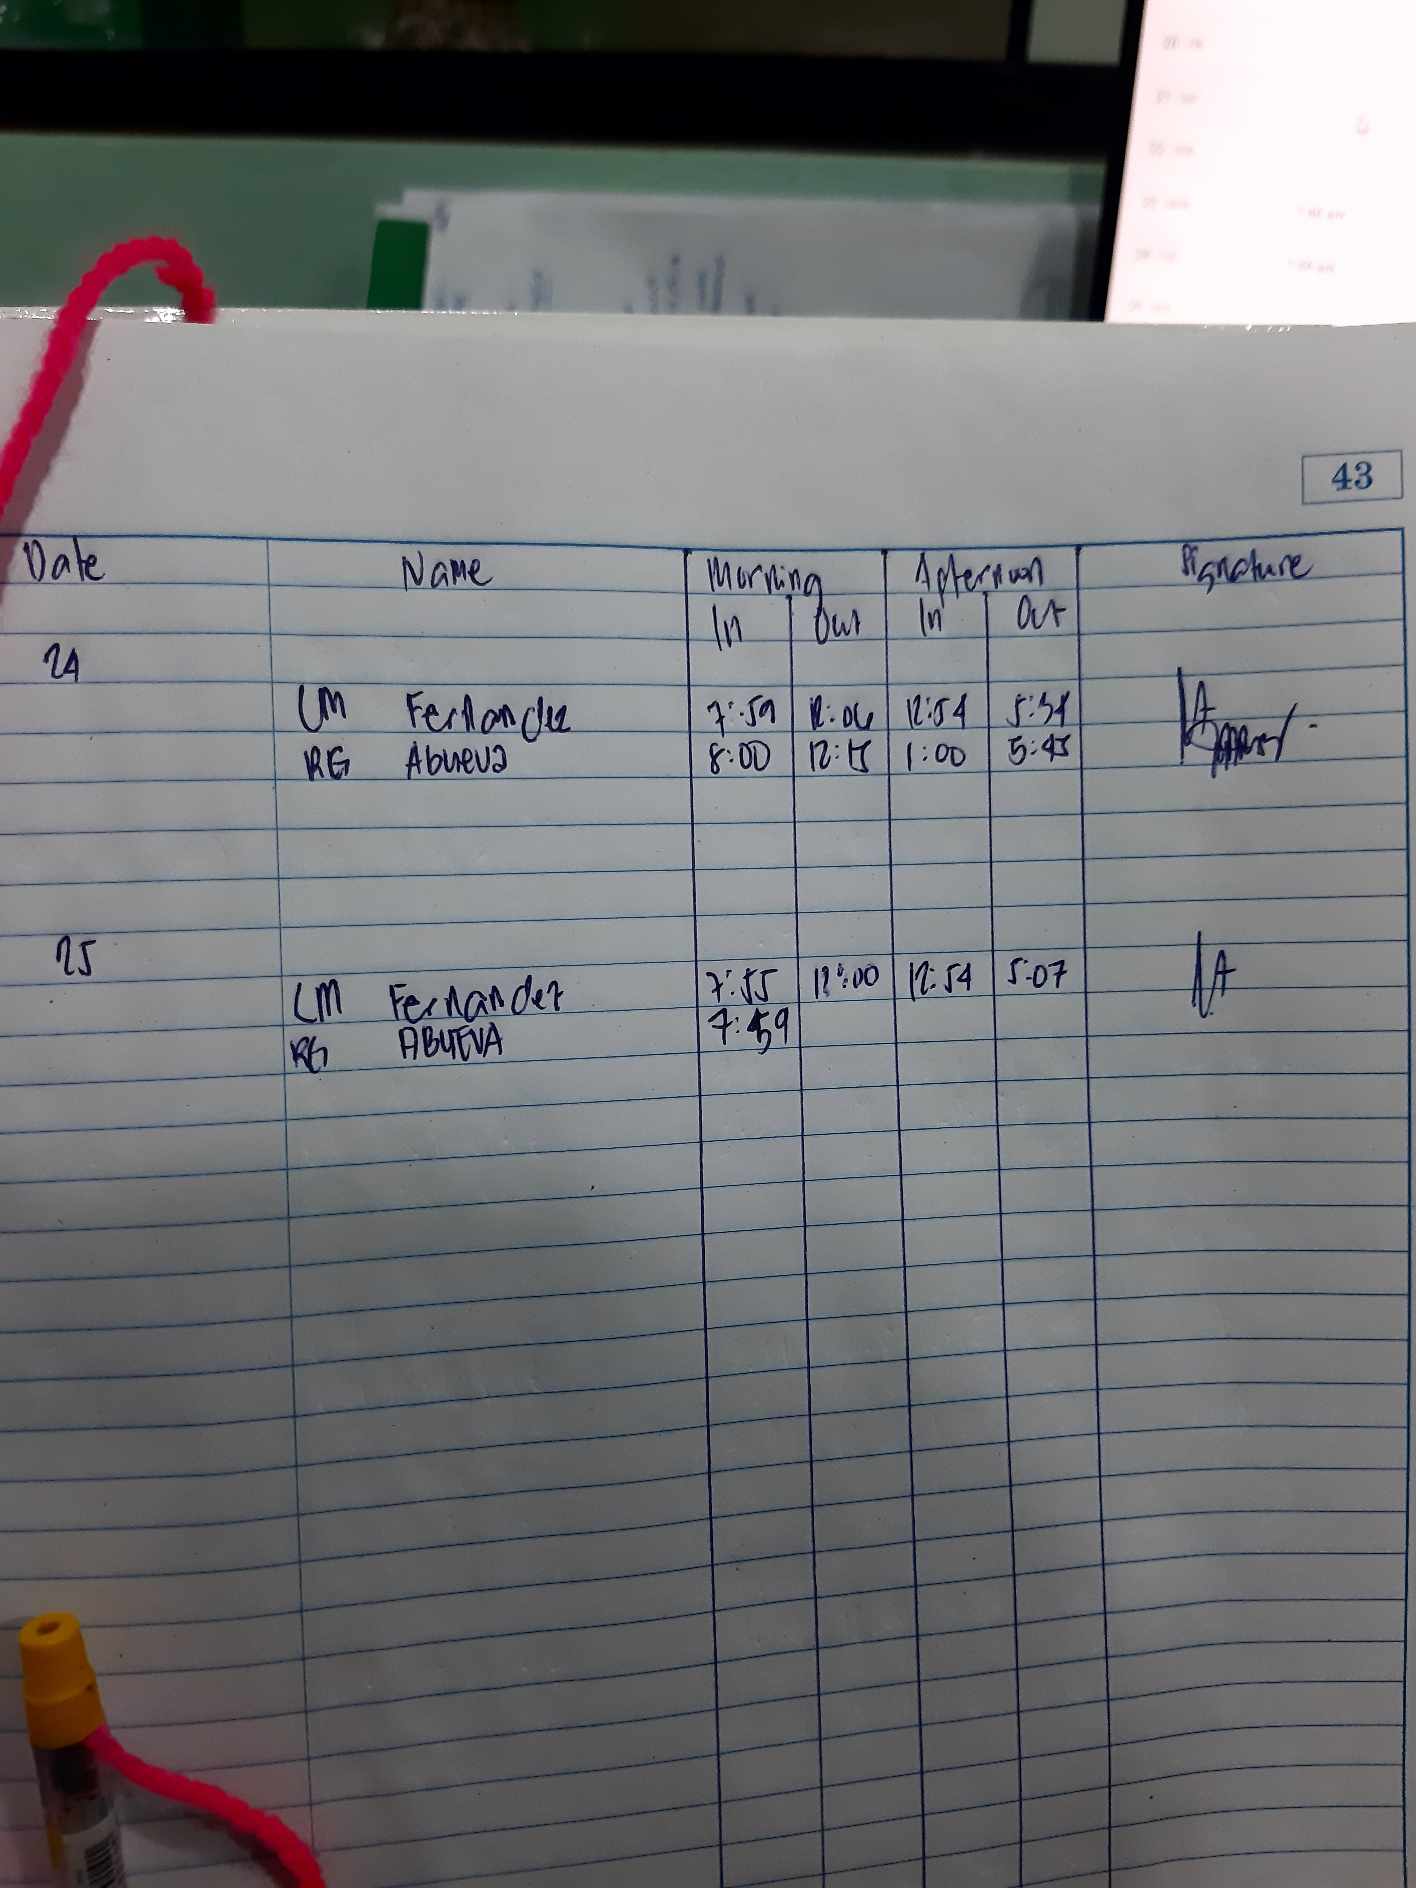 43
Date Name Morning Afternoon Signature
In Out In Out
24
LM Fernandez 7:59 12:06 12:54 5:34
RG Abueva 8:00 12:15 1:00 5:45
25
LM Fernandez 7:55 12:00 12:54 5:07
RG ABUEVA 7:59